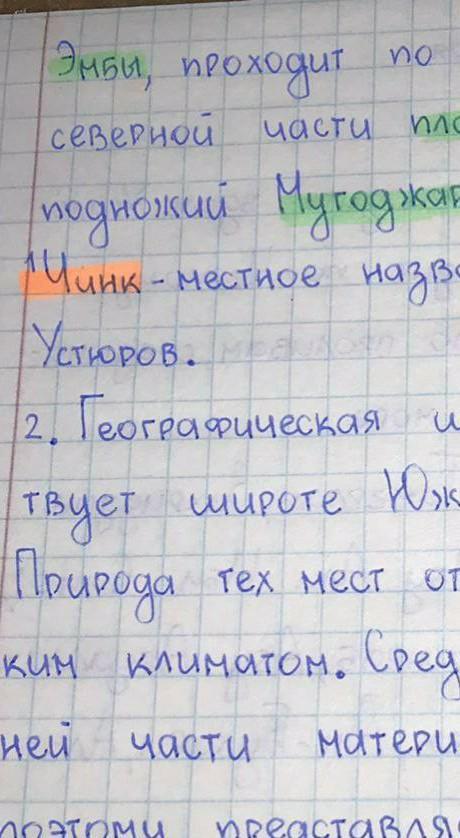 Эмбы, проходит по
северной части пло
подножий Мугоджар
¹Чинк - местное назва
Устюров.
2. Географическая ш
твует широте Юж
Природа тех мест от
ким климатом. Сред
ней части матери
поэтому представля